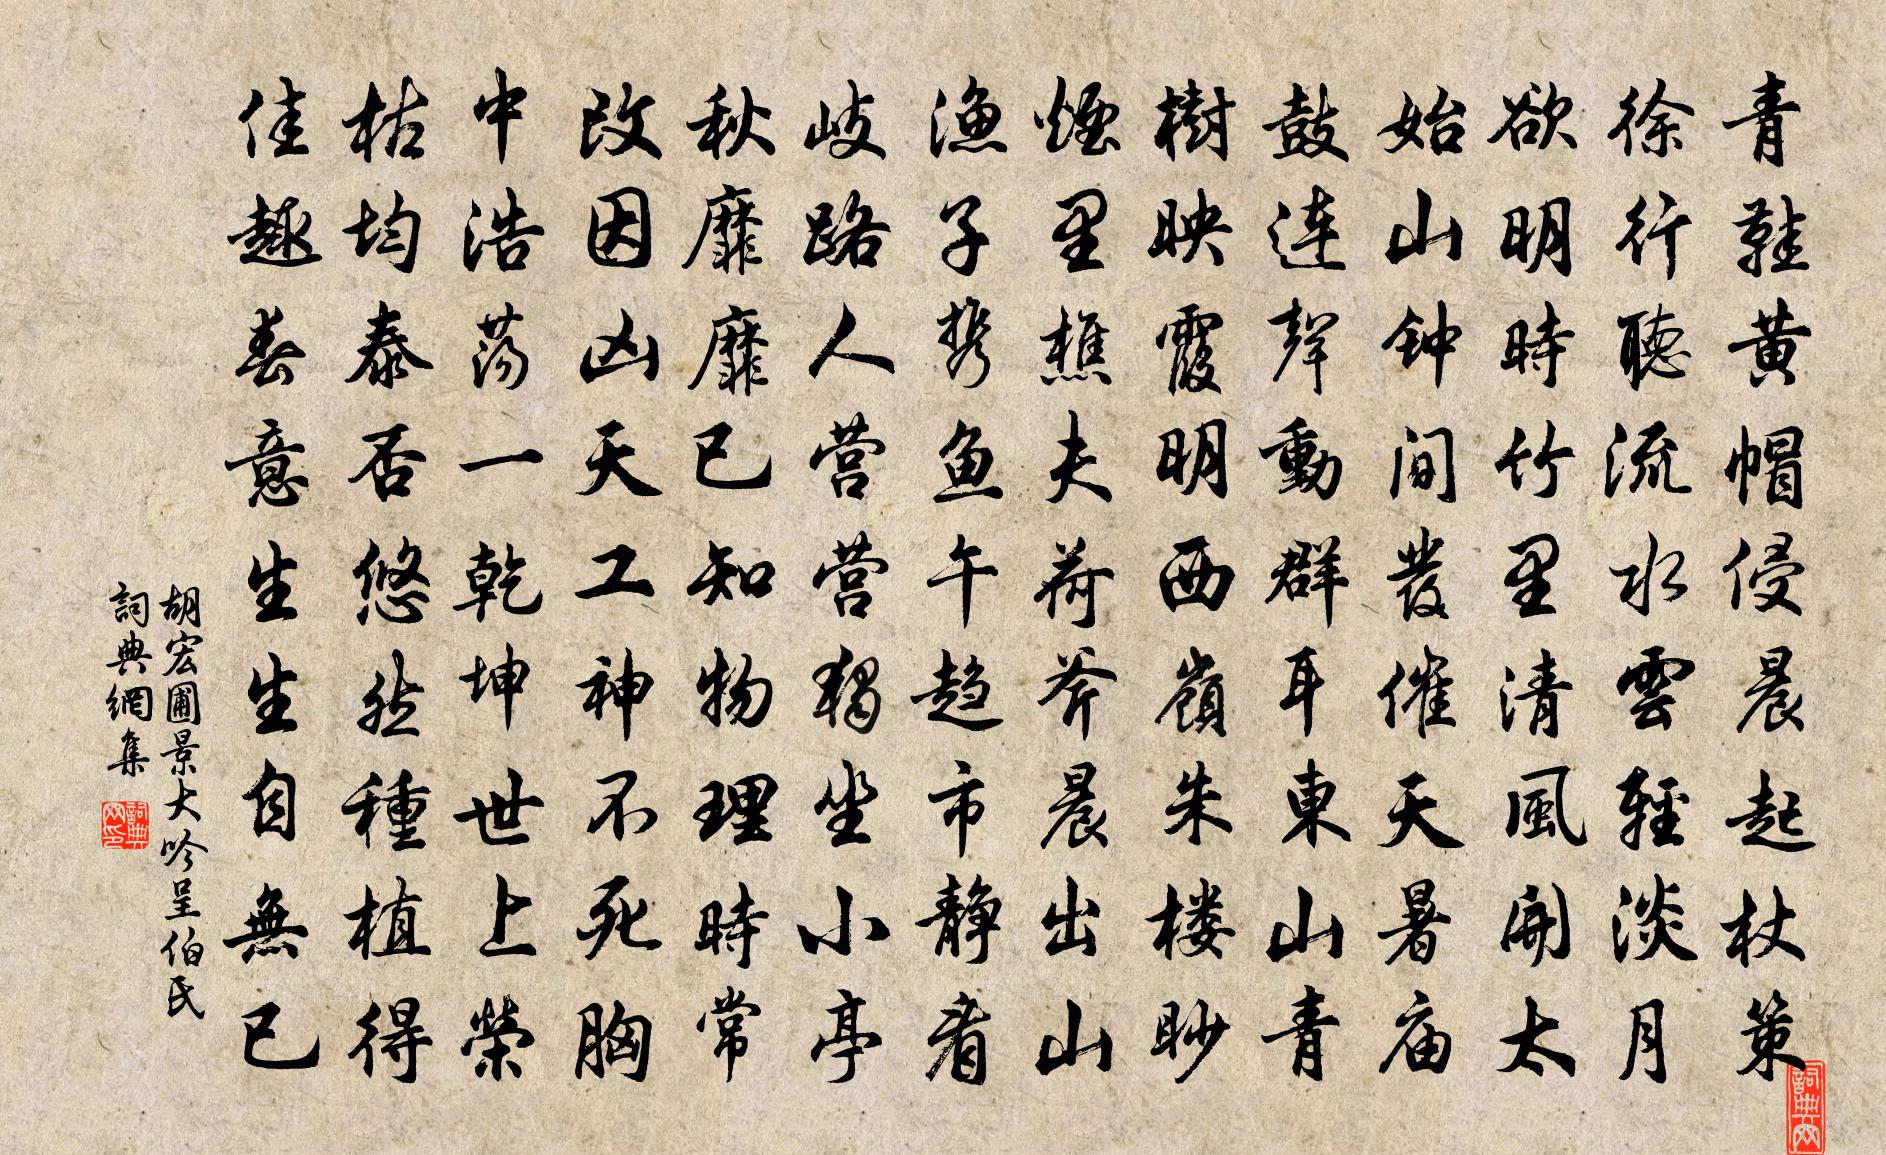 青鞋黄帽侵晨起杖策
徐行聽流水雲輕淡月
欲明時竹里清風開太
始山钟间發催天暑庙
鼓連聲動群耳東山青
樹映霞明西嶺朱楼眇
煙里樵夫荷斧晨出山
渔子携鱼午趋市静看
岐路人营营獨坐小亭
秋靡靡已知物理時常
改因凶天工神不死胸
中浩荡一乾坤世上榮
枯均泰否悠然種植得
佳趣春意生生自無已
胡宏圃景大吟呈伯氏
詞典網集
詞典网印
詞典网